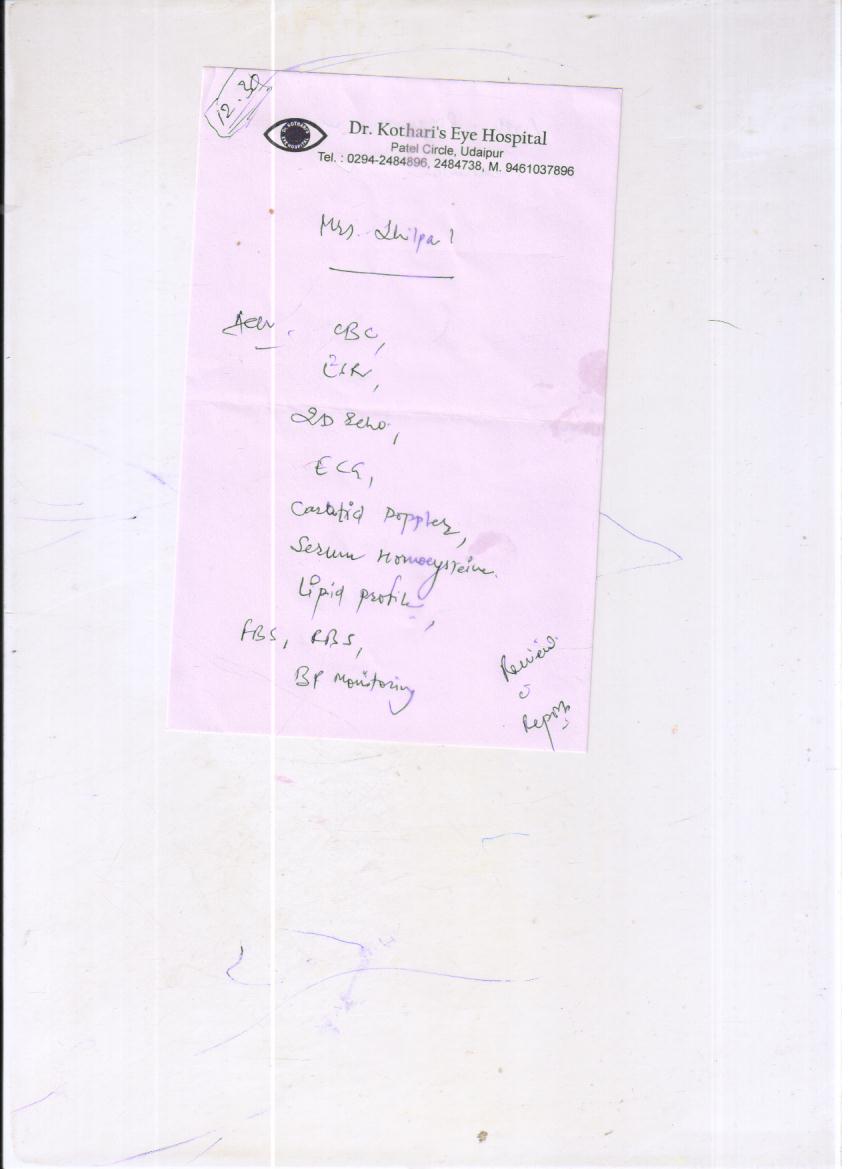 12.30
DR. KOTHARI'S
EYE HOSPITAL
Dr. Kothari's Eye Hospital
Patel Circle, Udaipur
Tel. : 0294-2484896, 2484738, M. 9461037896
Mrs. Shilpa
CBC,
ESR,
2D Echo,
ECG,
Carotid Doppler,
Serum Homocysteine.
Lipid profile,
FBS, RBS,
BP Monitoring
Review
c̄
Reports